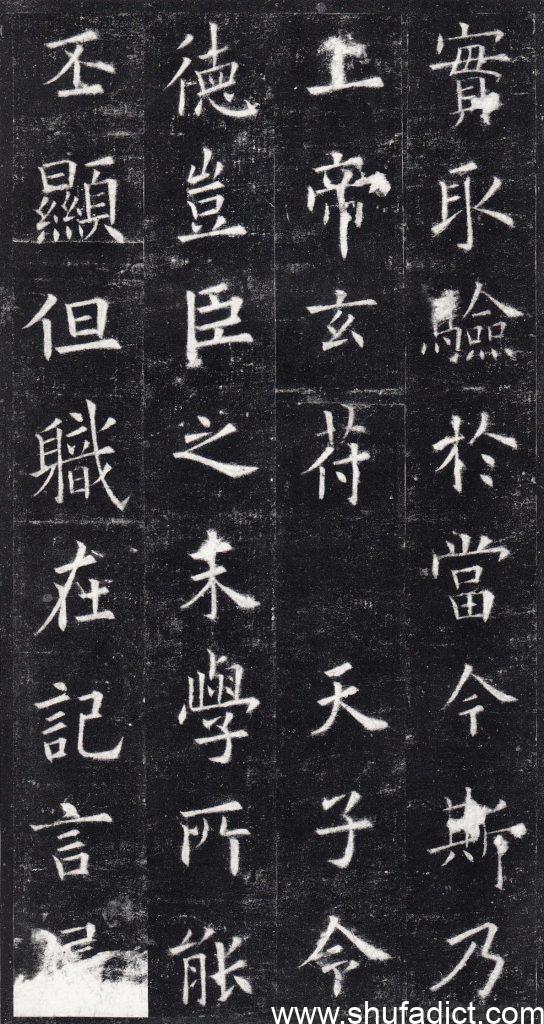 實取驗於當今斯乃
上帝玄符天子令
德豈臣之末學所能
丕顯但職在記言
www.shufadict.com